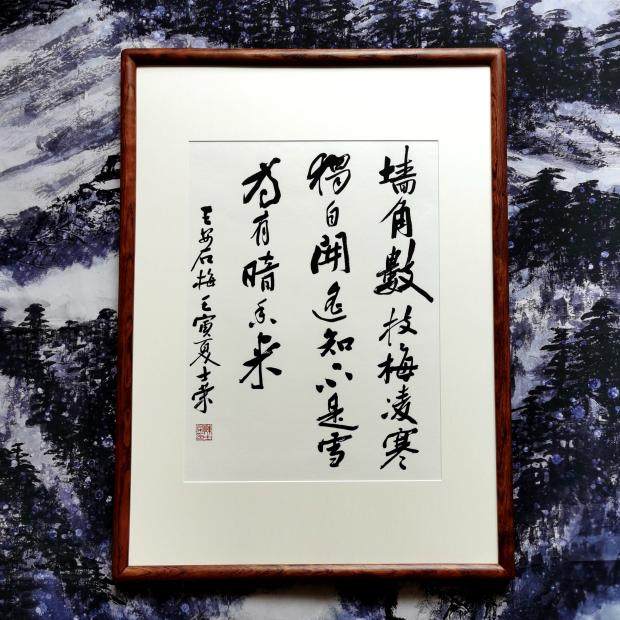 墙角數枝梅凌寒
獨自開遥知不是雪
为有暗香来
王安石梅壬寅夏士荣